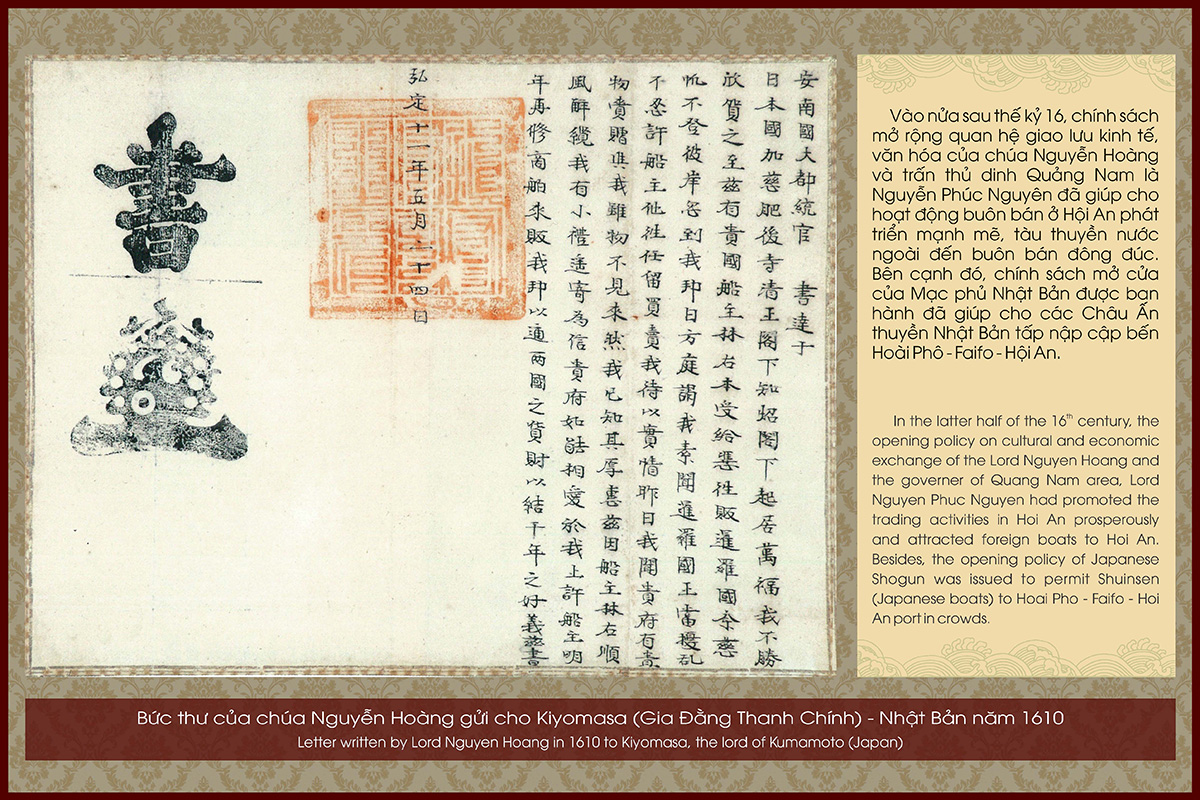 安南國大都統官 書達于
日本國加慈肥後寺清王閣下知炤閣下起居萬福我不勝
欣賀之至茲有貴國船主林右本受給往販暹羅國奈慈
帆不登彼岸忽到我邦日方庭謁我素聞暹羅國王富擾乱
不忍許船主他往任留買賣我待以實情昨日我聞貴府有
物賫贈與我雖物不見來然我已知其厚惠茲因船主林右順
風解纜我有小禮遥寄為信貴府如能相愛於我上許船主明
年再修商舶来販我邦以通兩國之貨財以結千年之好義茲書
弘定十一年五月二十四日
書
Vào nửa sau thế kỷ 16, chính sách
mở rộng quan hệ giao lưu kinh tế,
văn hóa của chúa Nguyễn Hoàng
và trấn thủ dinh Quảng Nam là
Nguyễn Phúc Nguyên đã giúp cho
hoạt động buôn bán ở Hội An phát
triển mạnh mẽ, tàu thuyền nước
ngoài đến buôn bán đông đúc.
Bên cạnh đó, chính sách mở cửa
của Mạc phủ Nhật Bản được ban
hành đã giúp cho các Châu Ấn
thuyền Nhật Bản tấp nập cập bến
Hoài Phô - Faifo - Hội An.
In the latter half of the 16th century, the
opening policy on cultural and economic
exchange of the Lord Nguyen Hoang and
the governer of Quang Nam area, Lord
Nguyen Phuc Nguyen had promoted the
trading activities in Hoi An prosperously
and attracted foreign boats to Hoi An.
Besides, the opening policy of Japanese
Shogun was issued to permit Shuinsen
(Japanese boats) to Hoai Pho - Faifo - Hoi
An port in crowds.
Bức thư của chúa Nguyễn Hoàng gửi cho Kiyomasa (Gia Đằng Thanh Chính) - Nhật Bản năm 1610
Letter written by Lord Nguyen Hoang in 1610 to Kiyomasa, the lord of Kumamoto (Japan)